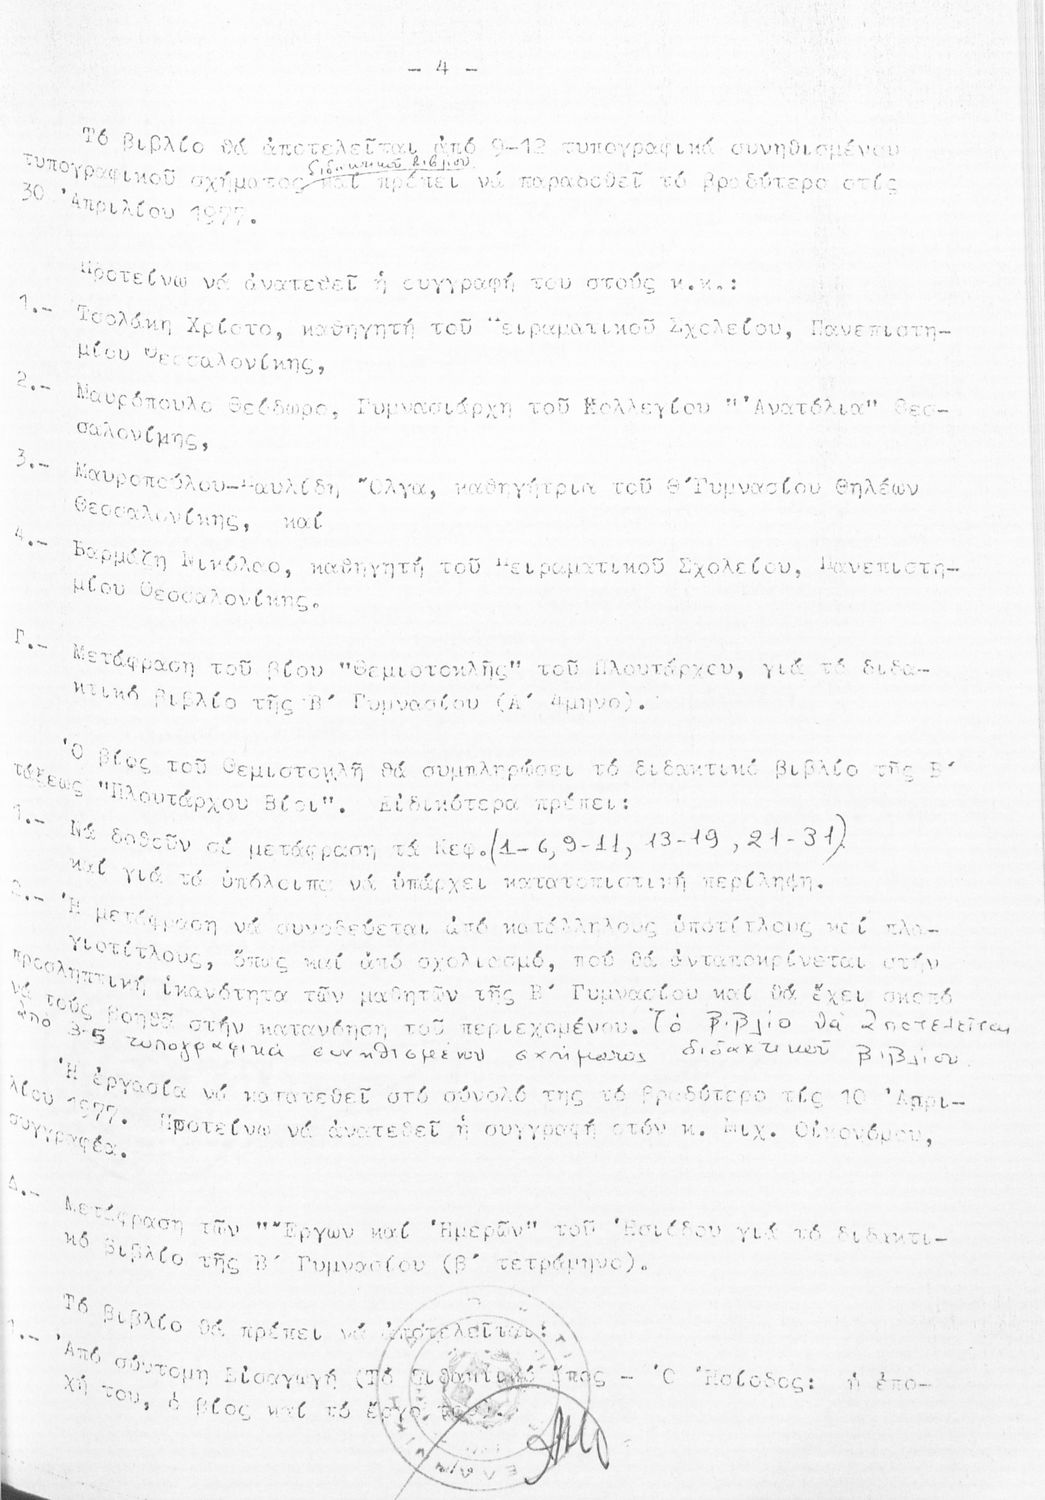 - 4 -
Τό βιβλίο θά ἀποτελεῖται ἀπό 9-12 τυπογραφικά συνηθισμένου
διδακτικοῦ βιβλίου
τυπογραφικοῦ σχήματος καί πρέπει νά παραδοθεῖ τό βραδύτερο στίς
30 Ἀπριλίου 1977.
Προτείνω νά ἀνατεθεῖ ἡ συγγραφή του στούς κ.κ.:
1.- Τσολάκη Χρίστο, καθηγητή τοῦ Πειραματικοῦ Σχολείου, Πανεπιστη-
μίου Θεσσαλονίκης,
2.- Μαυρόπουλο Θεόδωρο, Γυμνασιάρχη τοῦ Κολλεγίου "Ἀνατόλια" Θεσ-
σαλονίκης,
3.- Μαυροπούλου-Παυλίδη Ὄλγα, καθηγήτρια τοῦ Θ΄Γυμνασίου Θηλέων
Θεσσαλονίκης, καί
4.- Βαρμάζη Νικόλαο, καθηγητή τοῦ Πειραματικοῦ Σχολείου, Πανεπιστη-
μίου Θεσσαλονίκης.
Γ.- Μετάφραση τοῦ βίου "Θεμιστοκλῆς" τοῦ Πλουτάρχου, γιά τό διδα-
κτικό βιβλίο τῆς Β΄ Γυμνασίου (Α΄ 4μηνο).
Ὁ βίος τοῦ Θεμιστοκλῆ θά συμπληρώσει τό διδακτικό βιβλίο τῆς Β΄
τάξεως "Πλουτάρχου Βίοι". Εἰδικότερα πρέπει:
1.- Νά δοθοῦν σέ μετάφραση τά Κεφ.(1-6, 9-11, 13-19, 21-31)
καί γιά τό ὑπόλοιπα νά ὑπάρχει κατατοπιστική περίληψη.
2.- Ἡ μετάφραση νά συνοδεύεται ἀπό κατάλληλους ὑποτίτλους καί πλα-
γιοτίτλους, ὅπως καί ἀπό σχολιασμό, πού θά ἀνταποκρίνεται στήν
προσληπτική ἱκανότητα τῶν μαθητῶν τῆς Β΄ Γυμνασίου καί θά ἔχει σκοπό
νά τούς βοηθᾶ στήν κατανόηση τοῦ περιεχομένου. Τό βιβλίο θά ἀποτελεῖται
ἀπό 3-5 τυπογραφικά συνηθισμένου σχήματος διδακτικοῦ βιβλίου.
Ἡ ἐργασία νά κατατεθεῖ στό σύνολό της τό βραδύτερο τίς 10 Ἀπρι-
λίου 1977. Προτείνω νά ἀνατεθεῖ ἡ συγγραφή στόν κ. Μιχ. Οἰκονόμου,
συγγραφέα.
Δ.- Μετάφραση τῶν "Ἔργων καί Ἡμερῶν" τοῦ Ἡσιόδου γιά τό διδακτι-
κό βιβλίο τῆς Β΄ Γυμνασίου (β΄ τετράμηνο).
Τό βιβλίο θά πρέπει νά ἀποτελεῖται:
1.- Ἀπό σύντομη Εἰσαγωγή (Τό Διδακτικό Ἔπος - Ὁ Ἡσίοδος: ἡ ἐπο-
χή του, ὁ βίος καί τό ἔργο του).